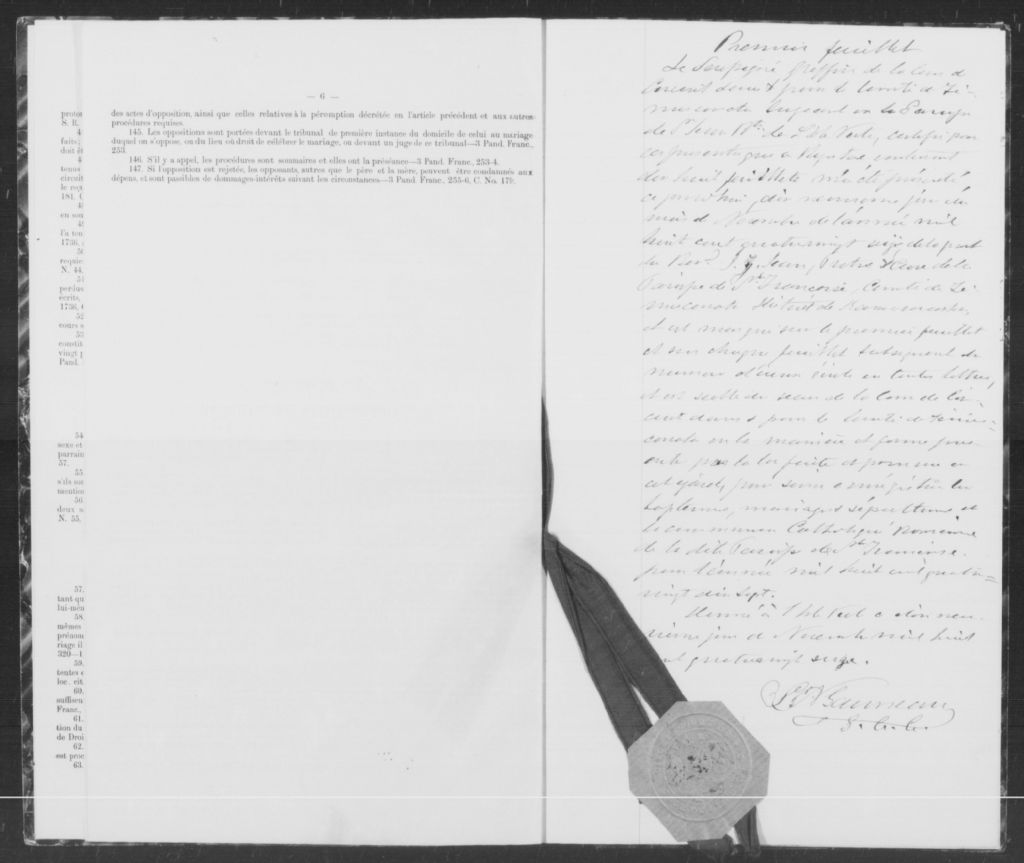 — 6 —
des actes d'opposition, ainsi que celles relatives à la péremption décrétée en l'article précédent et aux autres
procédures requises.
145. Les oppositions sont portées devant le tribunal de première instance du domicile de celui au mariage
duquel on s'oppose, ou du lieu où droit de célébrer le mariage, ou devant un juge de ce tribunal—3 Pand. Franc.,
253.
146. S'il y a appel, les procédures sont sommaires et elles ont la présèance—3 Pand. Franc., 253-4.
147. Si l'opposition est rejetée, les opposants, autres que le père et la mère, peuvent être condamnés aux
dépens, et sont passibles de dommages-intérêts suivant les circonstances—3 Pand. Franc., 255-6, C. No. 179.
protes
S. R.
4
faits;
doit êt
4
tenus
circuit
le reg
181. C
en son
l'a ten
1736,
requie
N. 44.
51
perdus
écrits,
1736,
52
cours
53
constit
vingt
Pand.
54
sexe et
parrain
57.
55
s'ils
mention
56.
deux
N. 55.
57.
tant qu
lui-mên
58.
mêmes
prénom
riage il
320—1
59.
tentes
loc. cit.
60.
suffisen
Franc.,
61.
tion du
de Droi
62.
est proc
63.
Premier feuillet
Le Soussigné Greffier de la Cour de
Circuit dans & pour le Comté de Té-
miscouata Siégeant en la Paroisse
de St Jean Bte de L'Isle Verte, certifie que
ces présentes que ce Registre contenant
dix huit feuillets m'a été présenté
ce jourd'hui dix neuvième jour du
mois de Novembre de l'année mil
huit cent quatrevingt seize de la part
du Revd J. Jean, Prêtre & Curé de la
Paroisse de St Françoise, Comté de Té-
miscouata District de Kamouraska,
et est marqué sur le premier feuillet
et sur chaque feuillet subséquent du
numéro d'iceux écrit en toutes lettres,
et est scellé du sceau de la Cour de Cir-
cuit dans & pour le Comté de Témis-
couata en la manière et forme pres-
crite par la loi faite et pourvue en
cet égard, pour servir à enrégistrer les
baptêmes, mariages & sépultures de
la commune Catholique Romaine
de la dite Paroisse de St Françoise
pour l'année mil huit cent quatre=
vingt dix sept.
Donné à l'Isle Verte ce dix neu-
vième jour de Novembre mil huit
cent quatrevingt seize.
G. C. C.